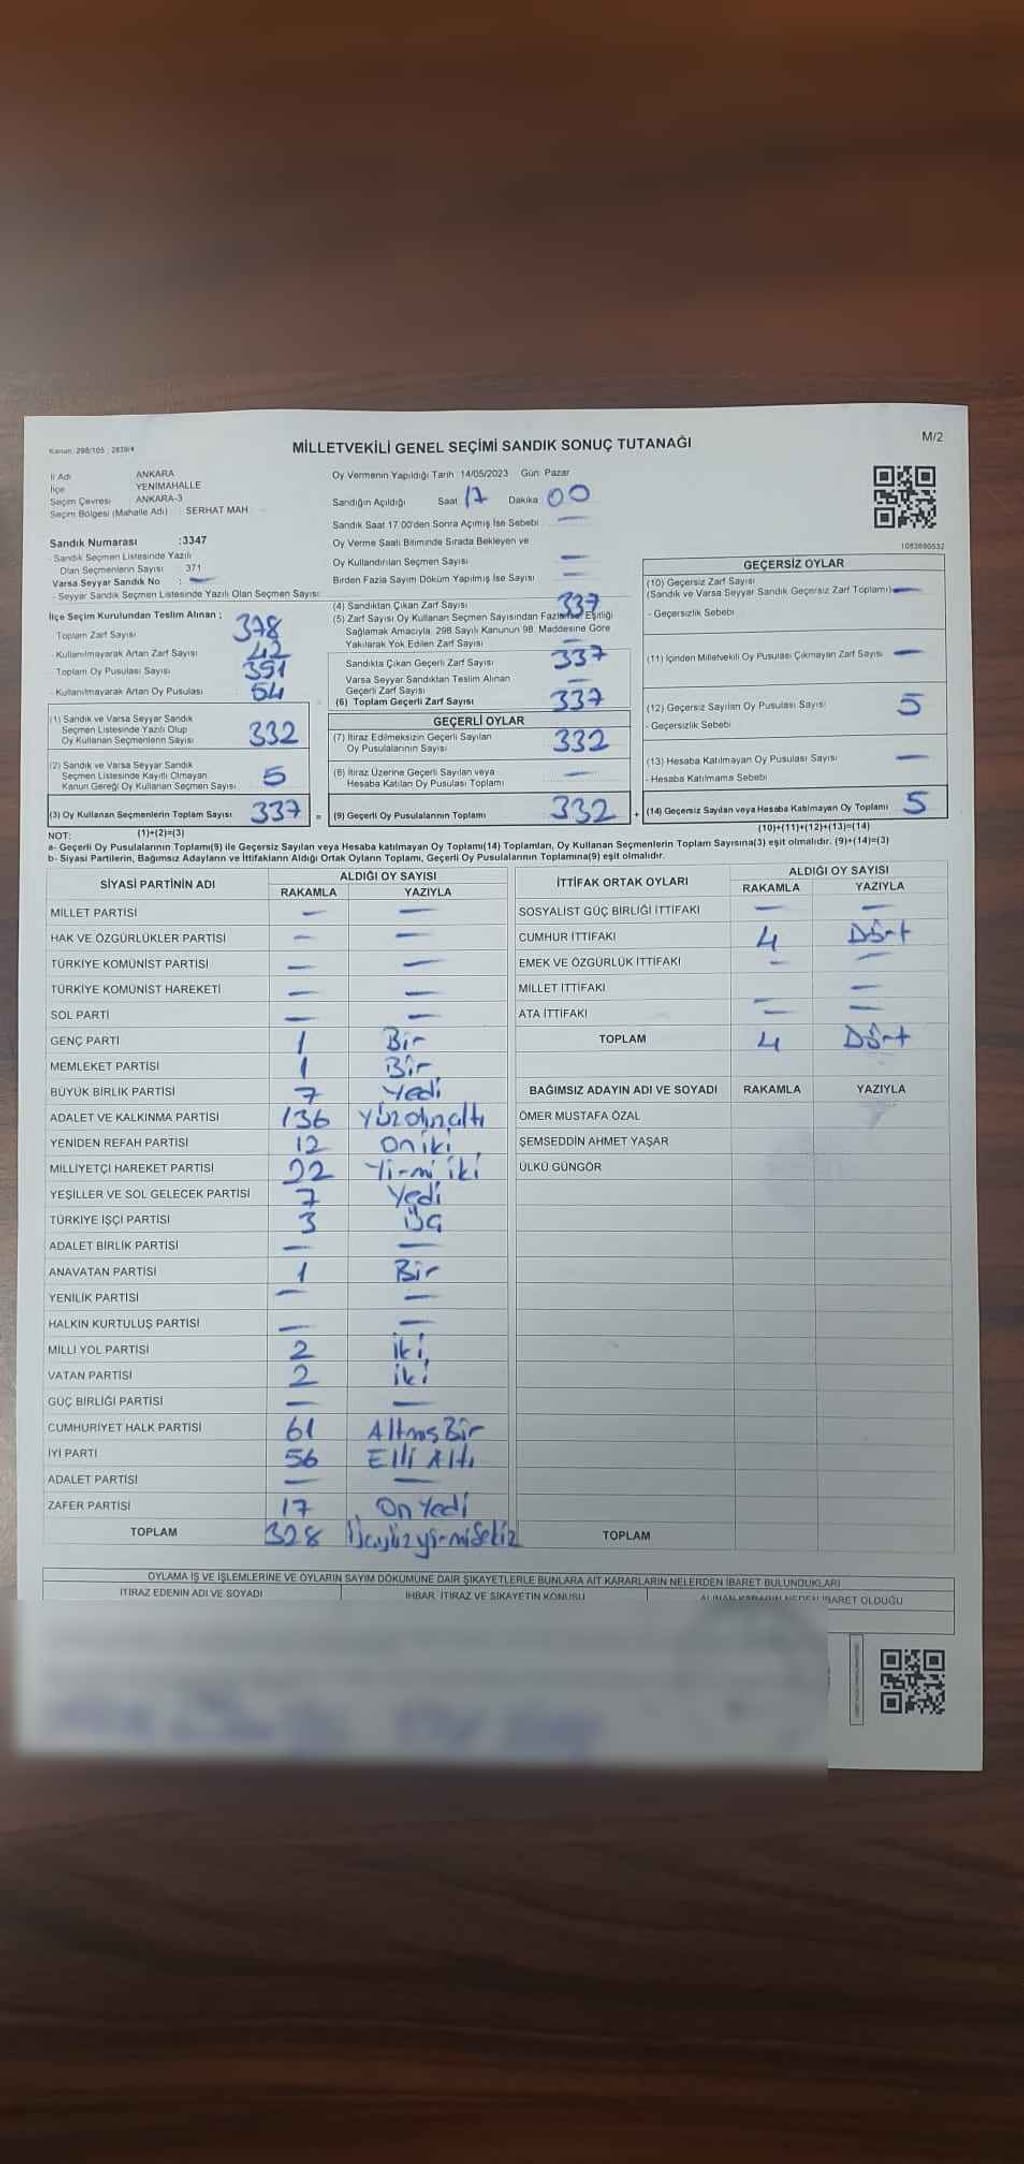 Kanun: 298/105 ; 2839/4
MİLLETVEKİLİ GENEL SEÇİMİ SANDIK SONUÇ TUTANAĞI
M/2
İl Adı ANKARA
İlçe YENİMAHALLE
Seçim Çevresi ANKARA-3
Seçim Bölgesi (Mahalle Adı) : SERHAT MAH.
Oy Vermenin Yapıldığı Tarih : 14/05/2023 Gün: Pazar
Sandığın Açıldığı Saat 17 Dakika 00
Sandık Saat 17.00'den Sonra Açılmış İse Sebebi —
Oy Verme Saati Bitiminde Sırada Bekleyen ve
Oy Kullandırılan Seçmen Sayısı —
Birden Fazla Sayım Döküm Yapılmış İse Sayısı —
1083690532
Sandık Numarası :3347
- Sandık Seçmen Listesinde Yazılı
Olan Seçmenlerin Sayısı 371
Varsa Seyyar Sandık No : —
- Seyyar Sandık Seçmen Listesinde Yazılı Olan Seçmen Sayısı:
İlçe Seçim Kurulundan Teslim Alınan ;
- Toplam Zarf Sayısı 378
- Kullanılmayarak Artan Zarf Sayısı 42
- Toplam Oy Pusulası Sayısı 391
- Kullanılmayarak Artan Oy Pusulası 54
(1) Sandık ve Varsa Seyyar Sandık
Seçmen Listesinde Yazılı Olup
Oy Kullanan Seçmenlerin Sayısı 332
(2) Sandık ve Varsa Seyyar Sandık
Seçmen Listesinde Kayıtlı Olmayan
Kanun Gereği Oy Kullanan Seçmen Sayısı 5
(3) Oy Kullanan Seçmenlerin Toplam Sayısı 337 =
(1)+(2)=(3)
(4) Sandıktan Çıkan Zarf Sayısı 337
(5) Zarf Sayısı Oy Kullanan Seçmen Sayısından Fazla İse, Eşitliği
Sağlamak Amacıyla, 298 Sayılı Kanunun 98. Maddesine Göre
Yakılarak Yok Edilen Zarf Sayısı —
Sandıkta Çıkan Geçerli Zarf Sayısı 337
Varsa Seyyar Sandıktan Teslim Alınan
Geçerli Zarf Sayısı —
(6) Toplam Geçerli Zarf Sayısı 337
GEÇERLİ OYLAR
(7) İtiraz Edilmeksizin Geçerli Sayılan
Oy Pusulalarının Sayısı 332
(8) İtiraz Üzerine Geçerli Sayılan veya
Hesaba Katılan Oy Pusulası Toplamı —
(9) Geçerli Oy Pusulalarının Toplamı 332 +
GEÇERSİZ OYLAR
(10) Geçersiz Zarf Sayısı
(Sandık ve Varsa Seyyar Sandık Geçersiz Zarf Toplamı) —
- Geçersizlik Sebebi
(11) İçinden Milletvekili Oy Pusulası Çıkmayan Zarf Sayısı —
(12) Geçersiz Sayılan Oy Pusulası Sayısı 5
- Geçersizlik Sebebi
(13) Hesaba Katılmayan Oy Pusulası Sayısı —
- Hesaba Katılmama Sebebi
(14) Geçersiz Sayılan veya Hesaba Katılmayan Oy Toplamı 5
(10)+(11)+(12)+(13)=(14)
NOT:
a- Geçerli Oy Pusulalarının Toplamı(9) ile Geçersiz Sayılan veya Hesaba katılmayan Oy Toplamı(14) Toplamları, Oy Kullanan Seçmenlerin Toplam Sayısına(3) eşit olmalıdır. (9)+(14)=(3)
b- Siyasi Partilerin, Bağımsız Adayların ve İttifakların Aldığı Ortak Oyların Toplamı, Geçerli Oy Pusulalarının Toplamına(9) eşit olmalıdır.
SİYASİ PARTİNİN ADI ALDIĞI OY SAYISI
RAKAMLA YAZIYLA
MİLLET PARTİSİ — —
HAK VE ÖZGÜRLÜKLER PARTİSİ — —
TÜRKİYE KOMÜNİST PARTİSİ — —
TÜRKİYE KOMÜNİST HAREKETİ — —
SOL PARTİ — —
GENÇ PARTİ 1 Bir
MEMLEKET PARTİSİ 1 Bir
BÜYÜK BİRLİK PARTİSİ 7 Yedi
ADALET VE KALKINMA PARTİSİ 136 Yüzotuzaltı
YENİDEN REFAH PARTİSİ 12 Oniki
MİLLİYETÇİ HAREKET PARTİSİ 22 Yirmi iki
YEŞİLLER VE SOL GELECEK PARTİSİ 7 Yedi
TÜRKİYE İŞÇİ PARTİSİ 3 Üç
ADALET BİRLİK PARTİSİ — —
ANAVATAN PARTİSİ 1 Bir
YENİLİK PARTİSİ — —
HALKIN KURTULUŞ PARTİSİ — —
MİLLİ YOL PARTİSİ 2 iki
VATAN PARTİSİ 2 iki
GÜÇ BİRLİĞİ PARTİSİ — —
CUMHURİYET HALK PARTİSİ 61 Altmış Bir
İYİ PARTİ 56 Elli Altı
ADALET PARTİSİ — —
ZAFER PARTİSİ 17 On Yedi
TOPLAM 328 Üçyüzyirmisekiz
İTTİFAK ORTAK OYLARI ALDIĞI OY SAYISI
RAKAMLA YAZIYLA
SOSYALİST GÜÇ BİRLİĞİ İTTİFAKI — —
CUMHUR İTTİFAKI 4 Dört
EMEK VE ÖZGÜRLÜK İTTİFAKI — —
MİLLET İTTİFAKI —
ATA İTTİFAKI — —
TOPLAM 4 Dört
BAĞIMSIZ ADAYIN ADI VE SOYADI RAKAMLA YAZIYLA
ÖMER MUSTAFA ÖZAL
ŞEMSEDDİN AHMET YAŞAR
ÜLKÜ GÜNGÖR
TOPLAM
OYLAMA İŞ VE İŞLEMLERİNE VE OYLARIN SAYIM DÖKÜMÜNE DAİR ŞİKAYETLERLE BUNLARA AİT KARARLARIN NELERDEN İBARET BULUNDUKLARI
İTİRAZ EDENİN ADI VE SOYADI İHBAR, İTİRAZ VE ŞİKAYETİN KONUSU ALINAN KARARIN NEDEN İBARET OLDUĞU